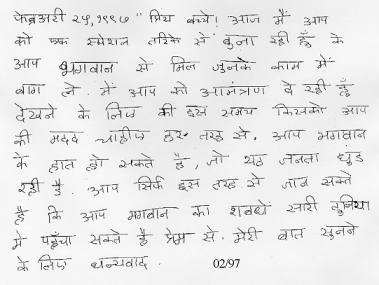 फेब्रुअरी २५, १९९७ " प्रिय बच्चे! आज मैं आप
को एक स्पेशल तरिके से बुला रही हूँ के
आप भगवान से मिल जुलके काम में
बाग ले. में आप को आमंत्रण दे रही हूँ
देखने के लिए की इस समय किसको आप
की मदद चाहीए हर तरह से. आप भगवान
के हात हो सकते है, जो यह जनता धुंड
रही है. आप सिर्फ इस तरह से जान सक्ते
है कि आप भगवान का शबधें सारी दुनिया
मे पहुँचा सक्ते है प्रेम से. मेरी बात सुनने
के लिए धन्यवाद. 02/97